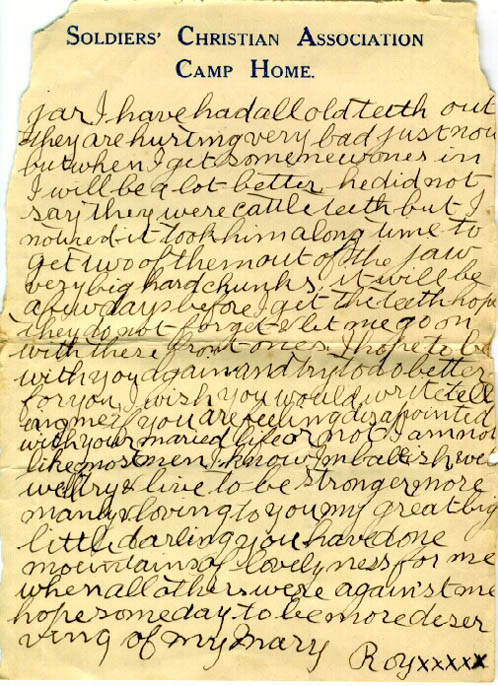 SOLDIERS' CHRISTIAN ASSOCIATION
CAMP HOME.
far I have had all old teeth out
they are hurting very bad just now
but when I get some new ones in
I will be a lot better he did not
say they were cattle teeth but I
noticed it took him along time to
get two of them out of the jaw
very big hard chunks, it will be
a few days before I get the teeth hope
they do not forget & let me go on
with these front ones I hope to be
with you again and try to do better
for you I wish you would write tell
ing me if you are feeling disapointed
with your maried life or not I am not
like most men I know
well try & live to be stronger more
manly & loving to you my great big
little darling you have done
mountains of lovelyness for me
when all others were against me
hope someday to be more deser
ving of my Mary
Roy xxxxx